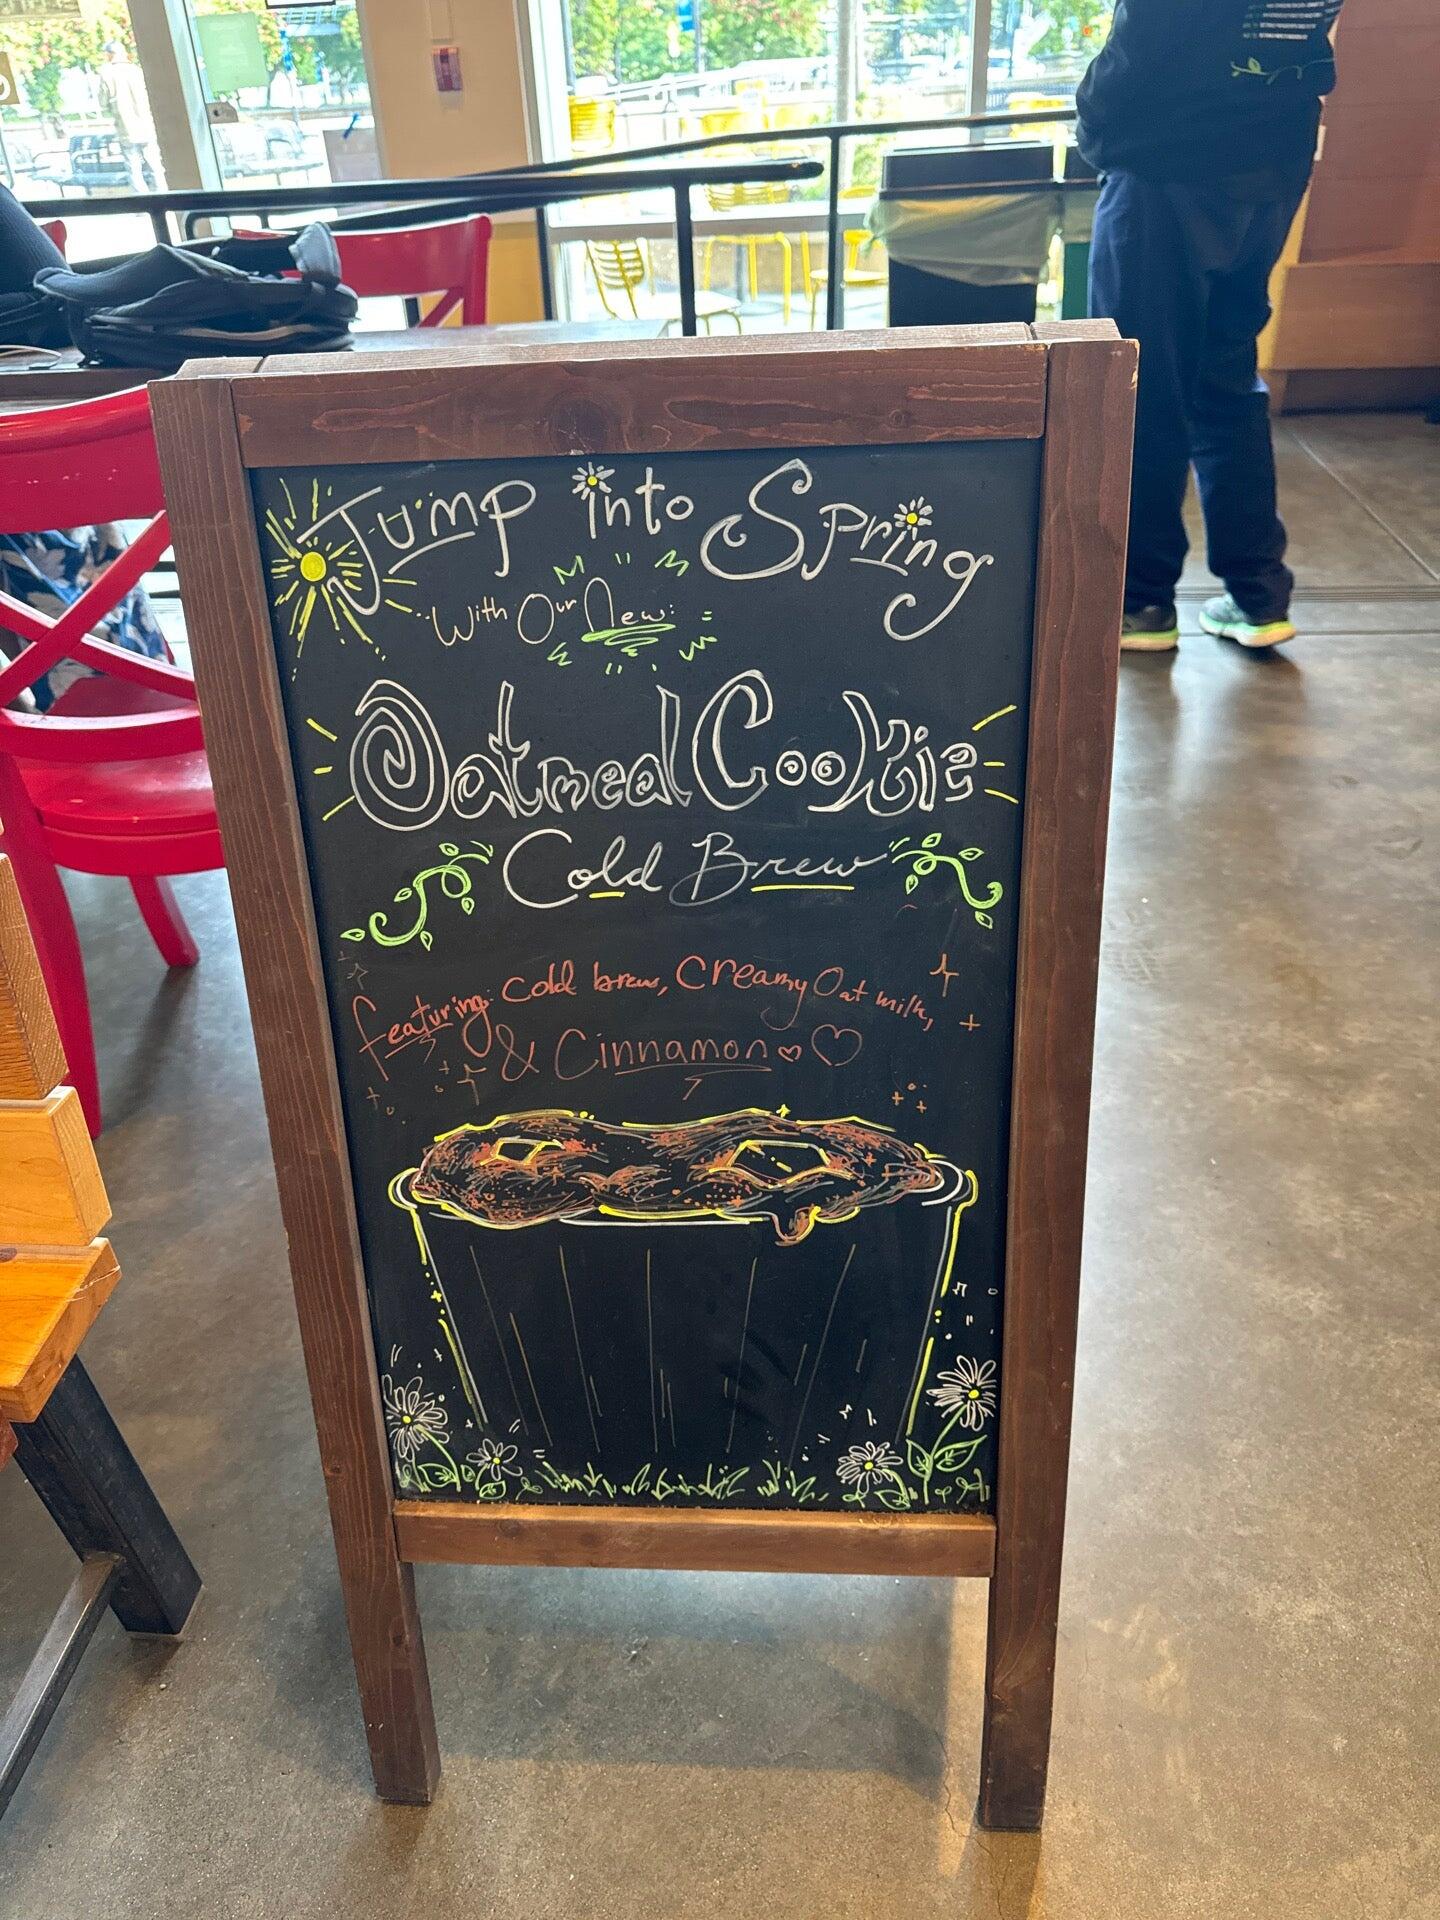 Jump into Spring
With Our New:
Oatmeal Cookie
Cold Brew
featuring: cold brew, Creamy Oat milk,
& Cinnamon